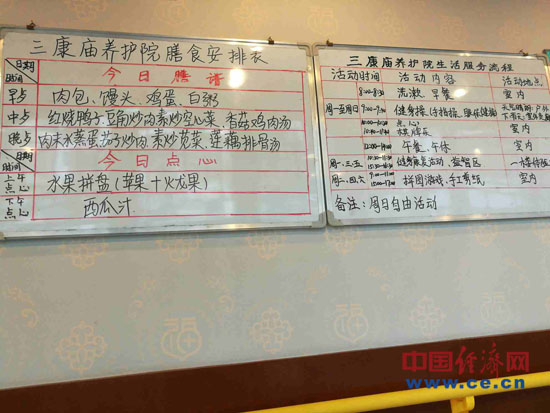 三康庙养护院膳食安排表
日期
时间
今日膳谱
早点 肉包、馒头、鸡蛋、白粥
中点 红烧鸭子 豆角炒肉 素炒空心菜 香菇鸡肉汤
晚点 肉末水蒸蛋 茄子炒肉 素炒花菜 莲藕排骨汤
日期
时间
今日点心
上午点心 水果拼盘(苹果+火龙果)
下午点 西瓜汁
三康庙养护院生活服务流程
活动时间 活动内容 活动地点
8:00-8:30 洗漱、早餐 室内
周一至周日 健身操、
点心
午餐、午休 室内
周一、三、五 益智区
周二、四、六 拼图游戏、手工剪纸 室内
备注:周日自由活动
中国经济网
www.ce.cn